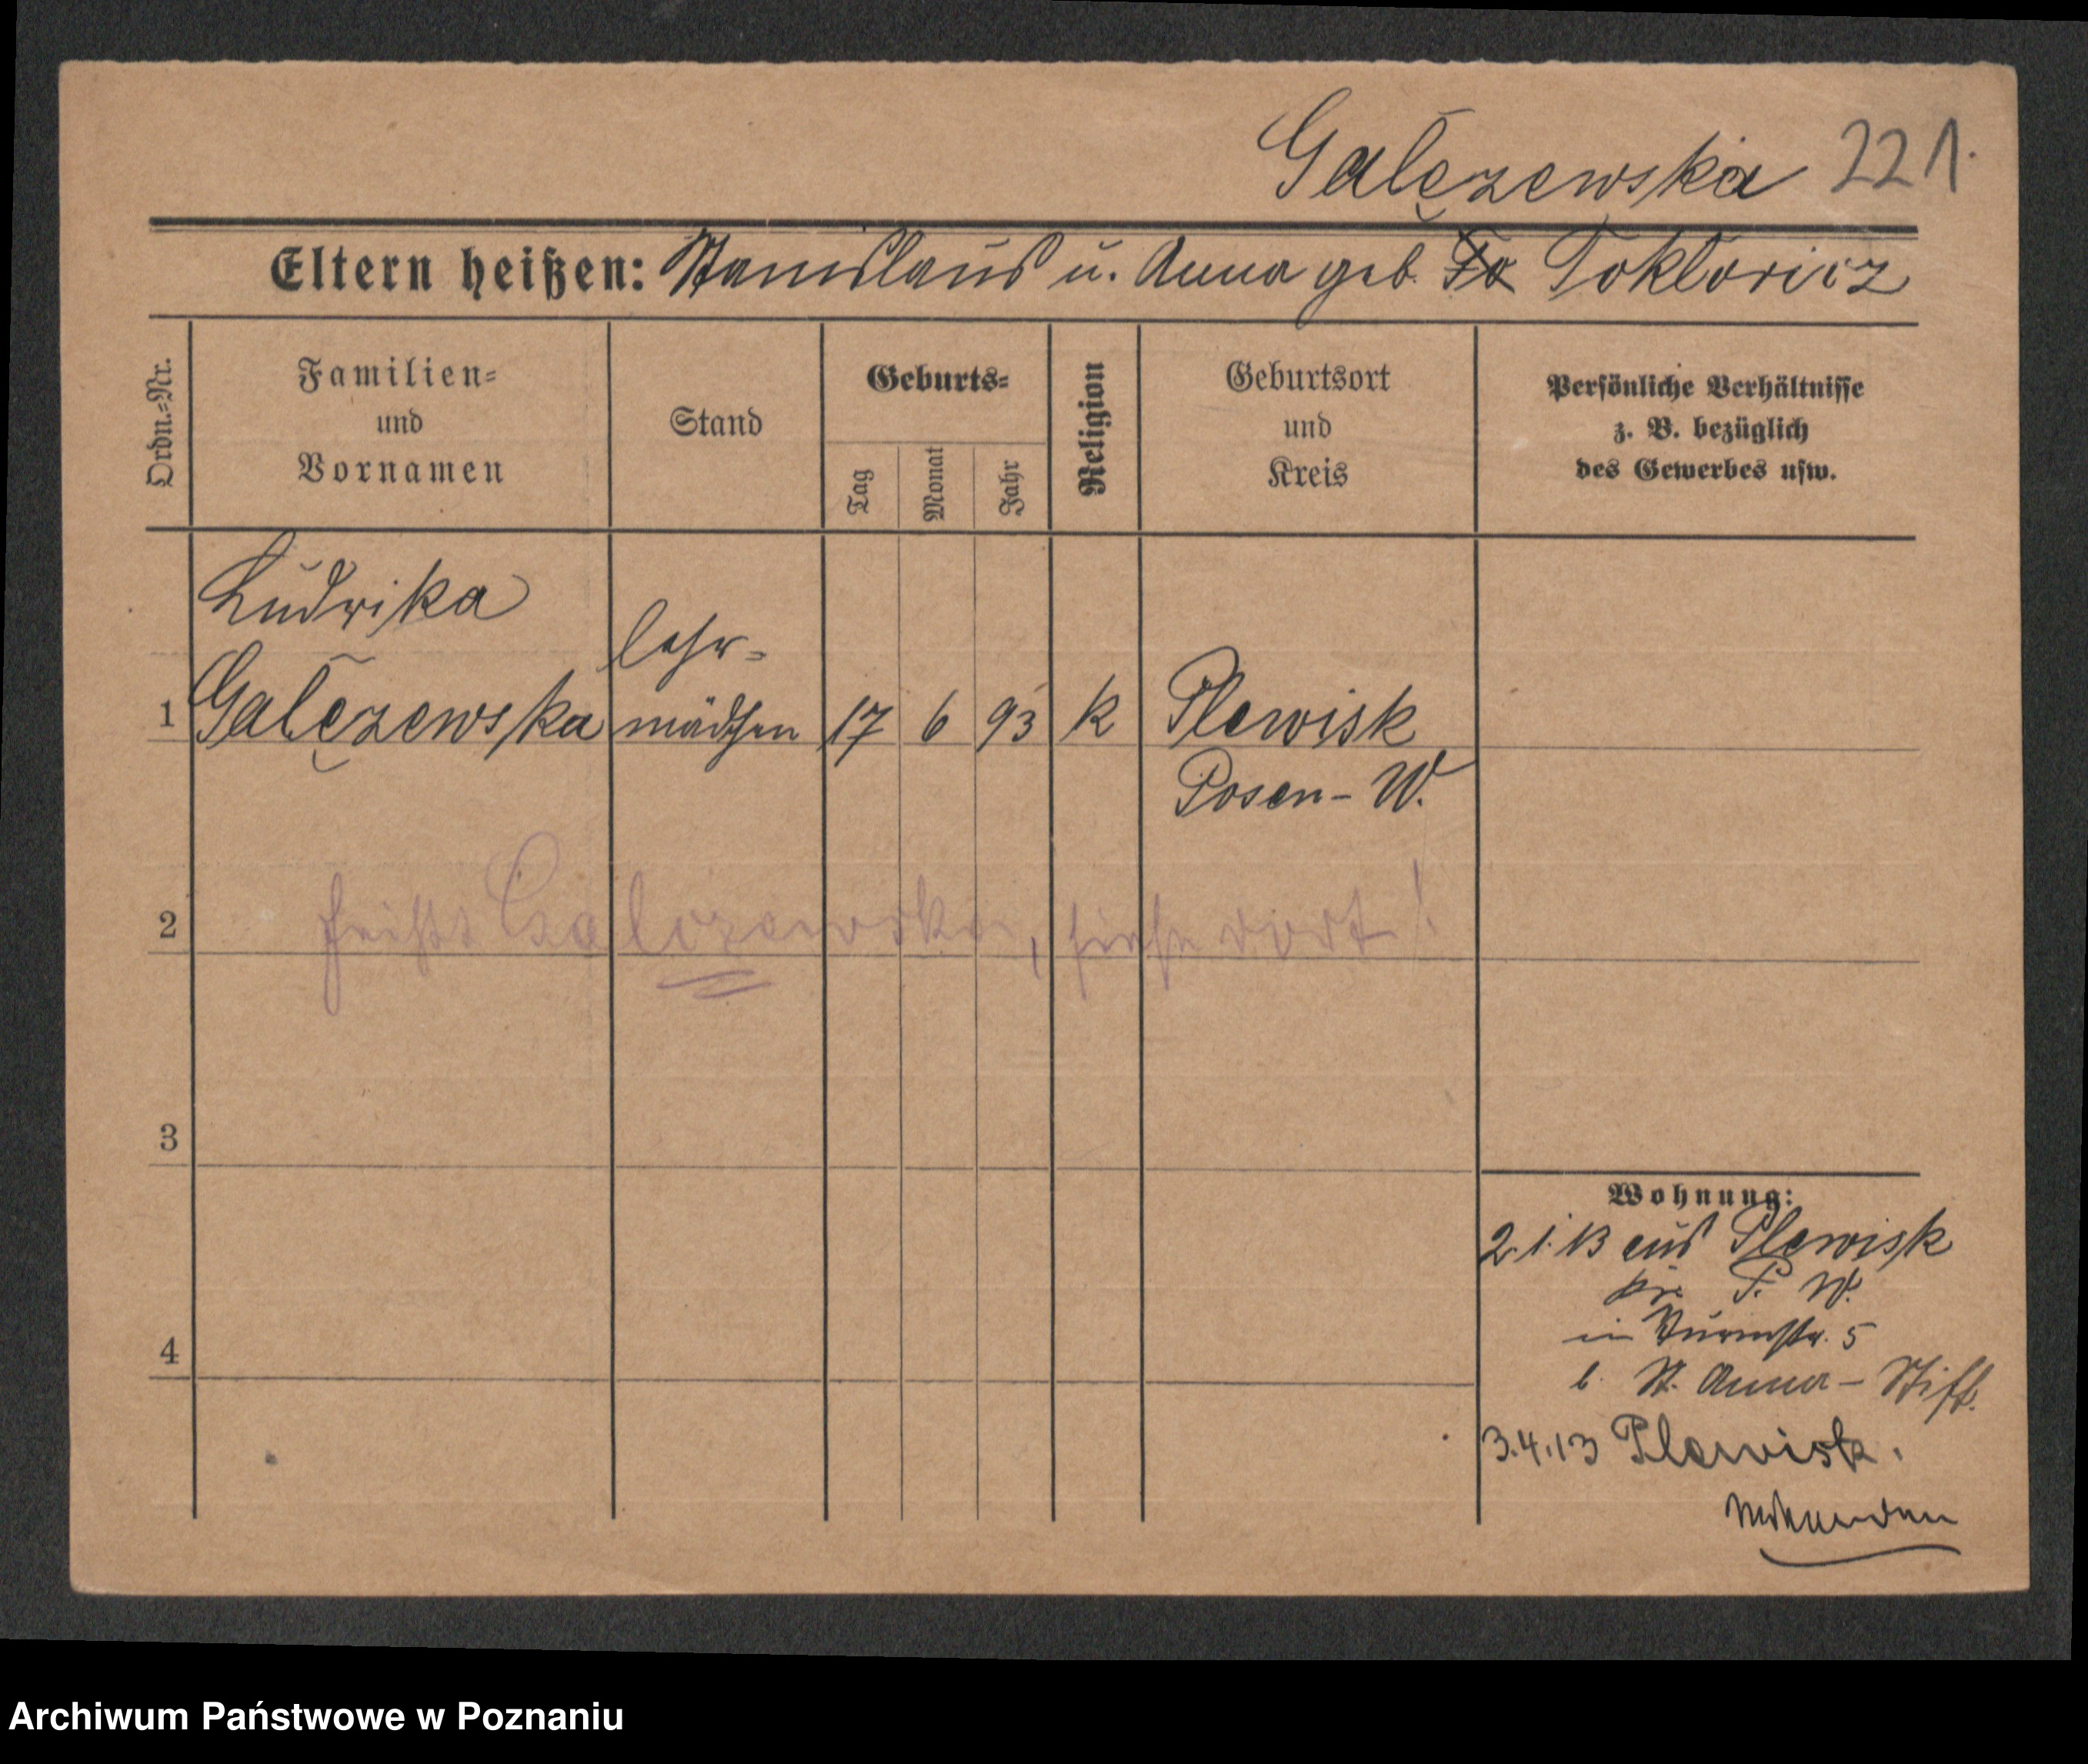 Galęzewska 221.
Eltern heißen: Stanislaus u. Anna geb. Toktoricz
Ordn.=Nr.
Familien=
und
Vornamen
Stand
Geburts=
Tag
Monat
Jahr
Religion
Geburtsort
und
Kreis
Persönliche Verhältnisse
z. B. bezüglich
des Gewerbes usw.
Ludwika
Lehr=
1 Galęzewska mädchen 17 6 93 k Plewisk
Posen - W.
2 heißt Galczewska, siehe dort!
3
4
Wohnung:
2.1.13 aus Plewisk
Kr. P. W.
in Turmstr. 5
b. St. Anna - Stift.
3.4.13 Plewisk.
Archiwum Państwowe w Poznaniu